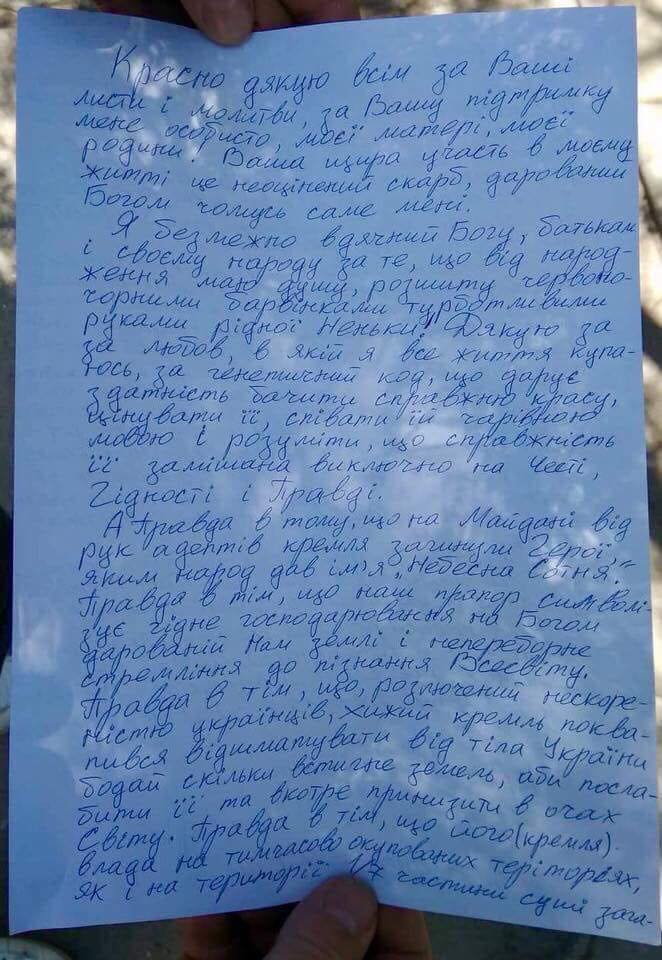 Красно дякую всім за Ваші
листи і молитви, за Вашу підтримку
мене особисто, моєї матері, моєї
родини! Ваша щира участь в моєму
житті це неоцінений скарб, дарований
Богом чомусь саме мені.
Я безмежно вдячний Богу, батькам
і своєму народу за те, що від народ-
ження маю душу, розшиту червоно-
чорними барвінками турботливими
руками рідної Неньки! Дякую за
за любов, в якій я все життя купа-
юсь, за генетичний код, що дарує
здатність бачити справжню красу,
цінувати її, співати їй чарівною
мовою і розуміти, що справжність
її замішана виключно на Честі,
Гідності і Правді.
А Правда в тому, що на Майдані від
рук адептів кремля загинули Герої,
яким народ дав ім'я „Небесна Сотня".
Правда в тім, що наш прапор символі-
зує гідне господарювання на Богом
дарованій нам землі і непереборне
стремління до пізнання Всесвіту.
Правда в тім, що, розлючений нескоре-
ністю українців, хижий кремль поква-
пився відшматувати від тіла України
бодай скільки встигне земель, аби посла-
бити її та вкотре принизити в очах
Світу. Правда в тім, що його (кремля)
влада на тимчасово окупованих теріторіях,
як і на території 1/7 частини суші зага-